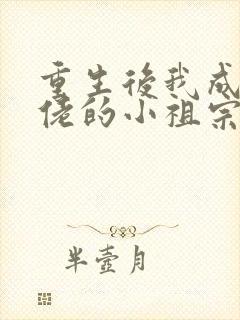 重生後我成
佬的小祖宗
半壺月